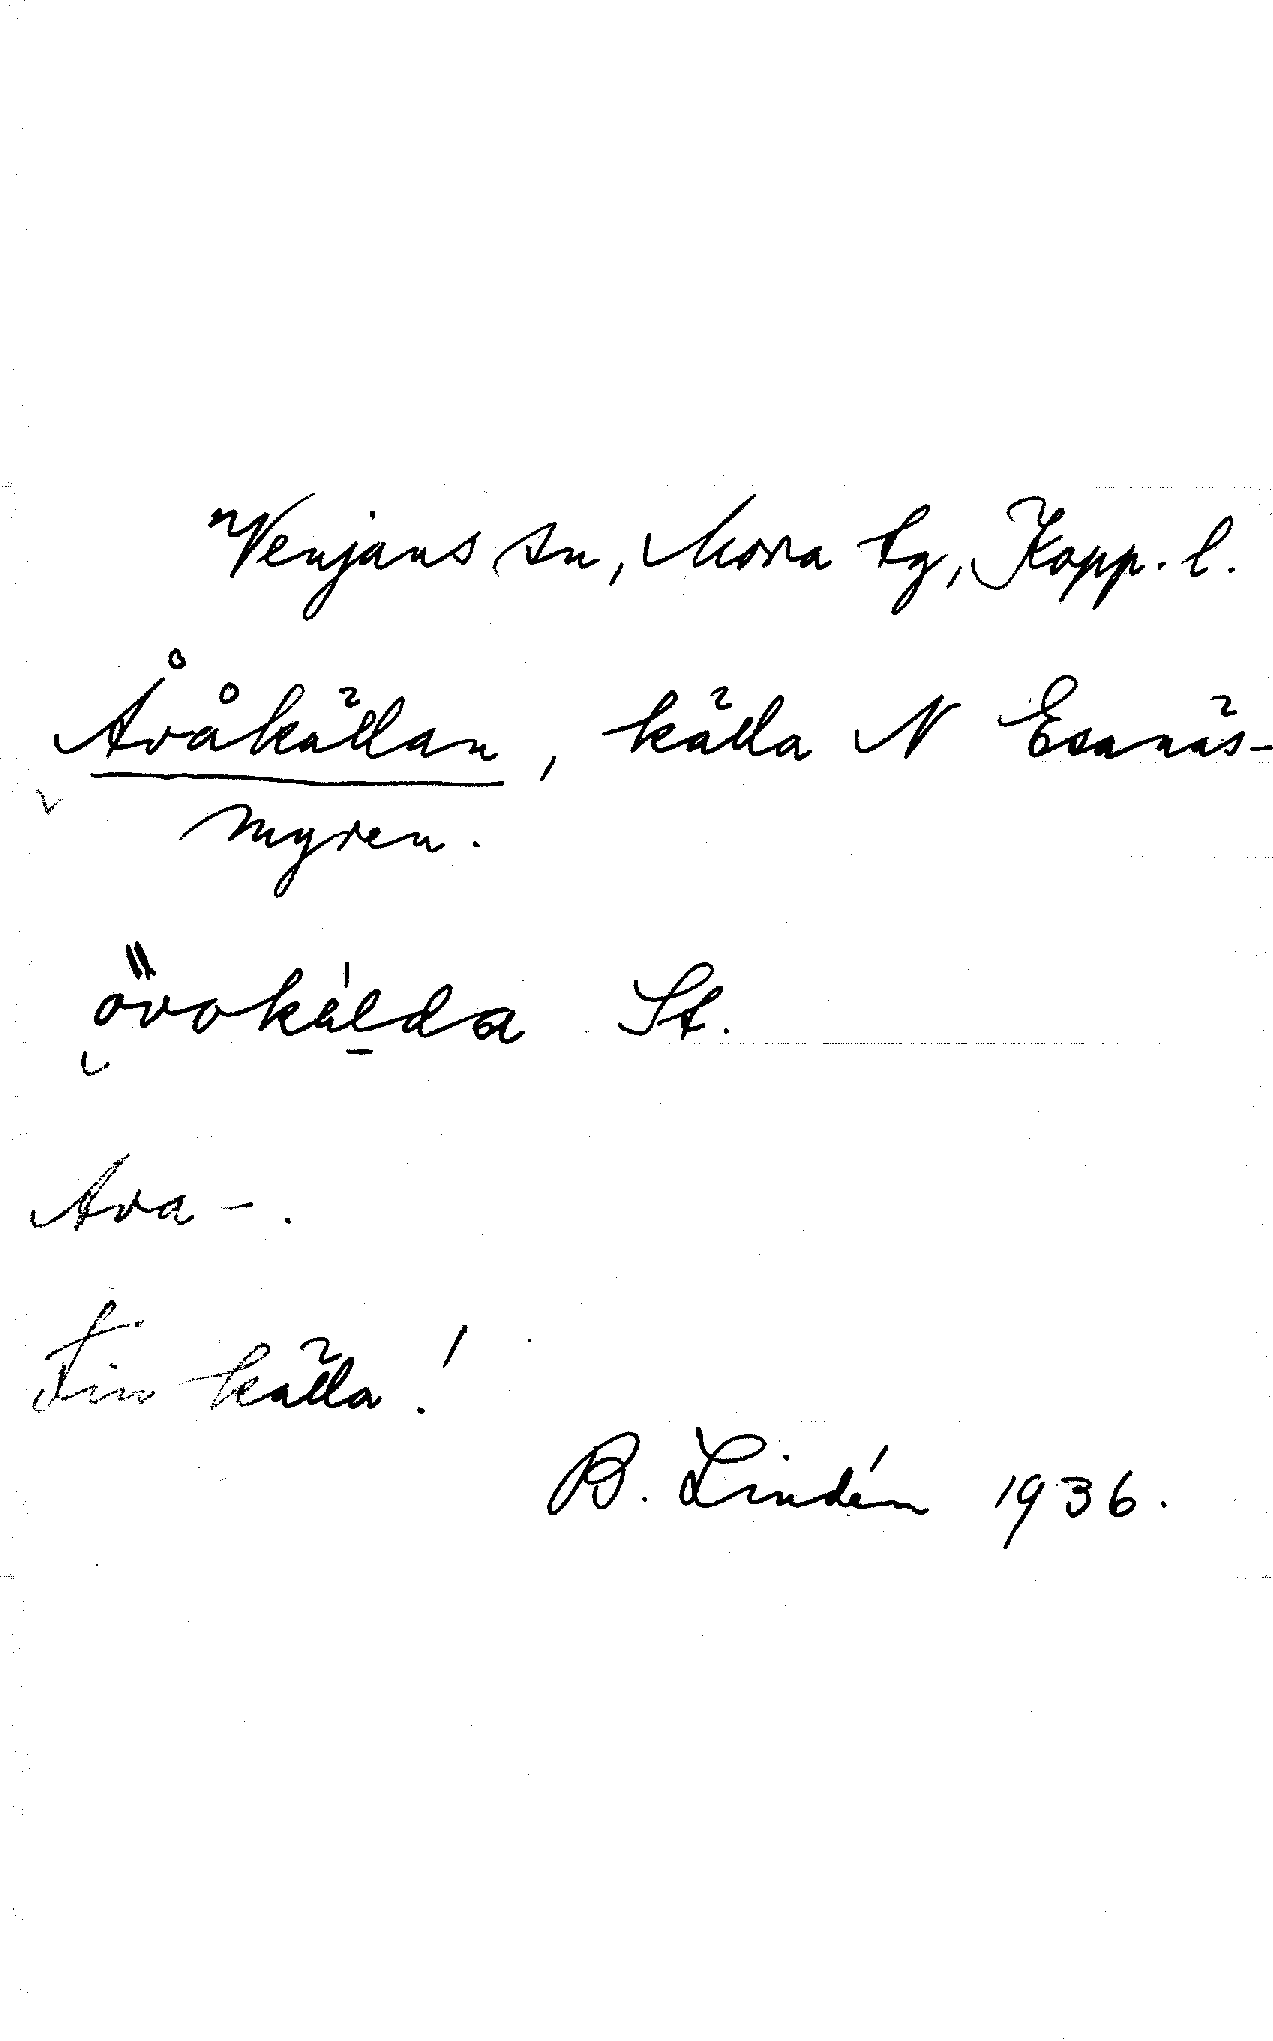 Venjans sn, Mora tg, Kopp. l.
Åvåkällan, källa N Esanäs-
myren.
övokälda St.
Ava-.
Fin källa!
B. Lindén 1936.